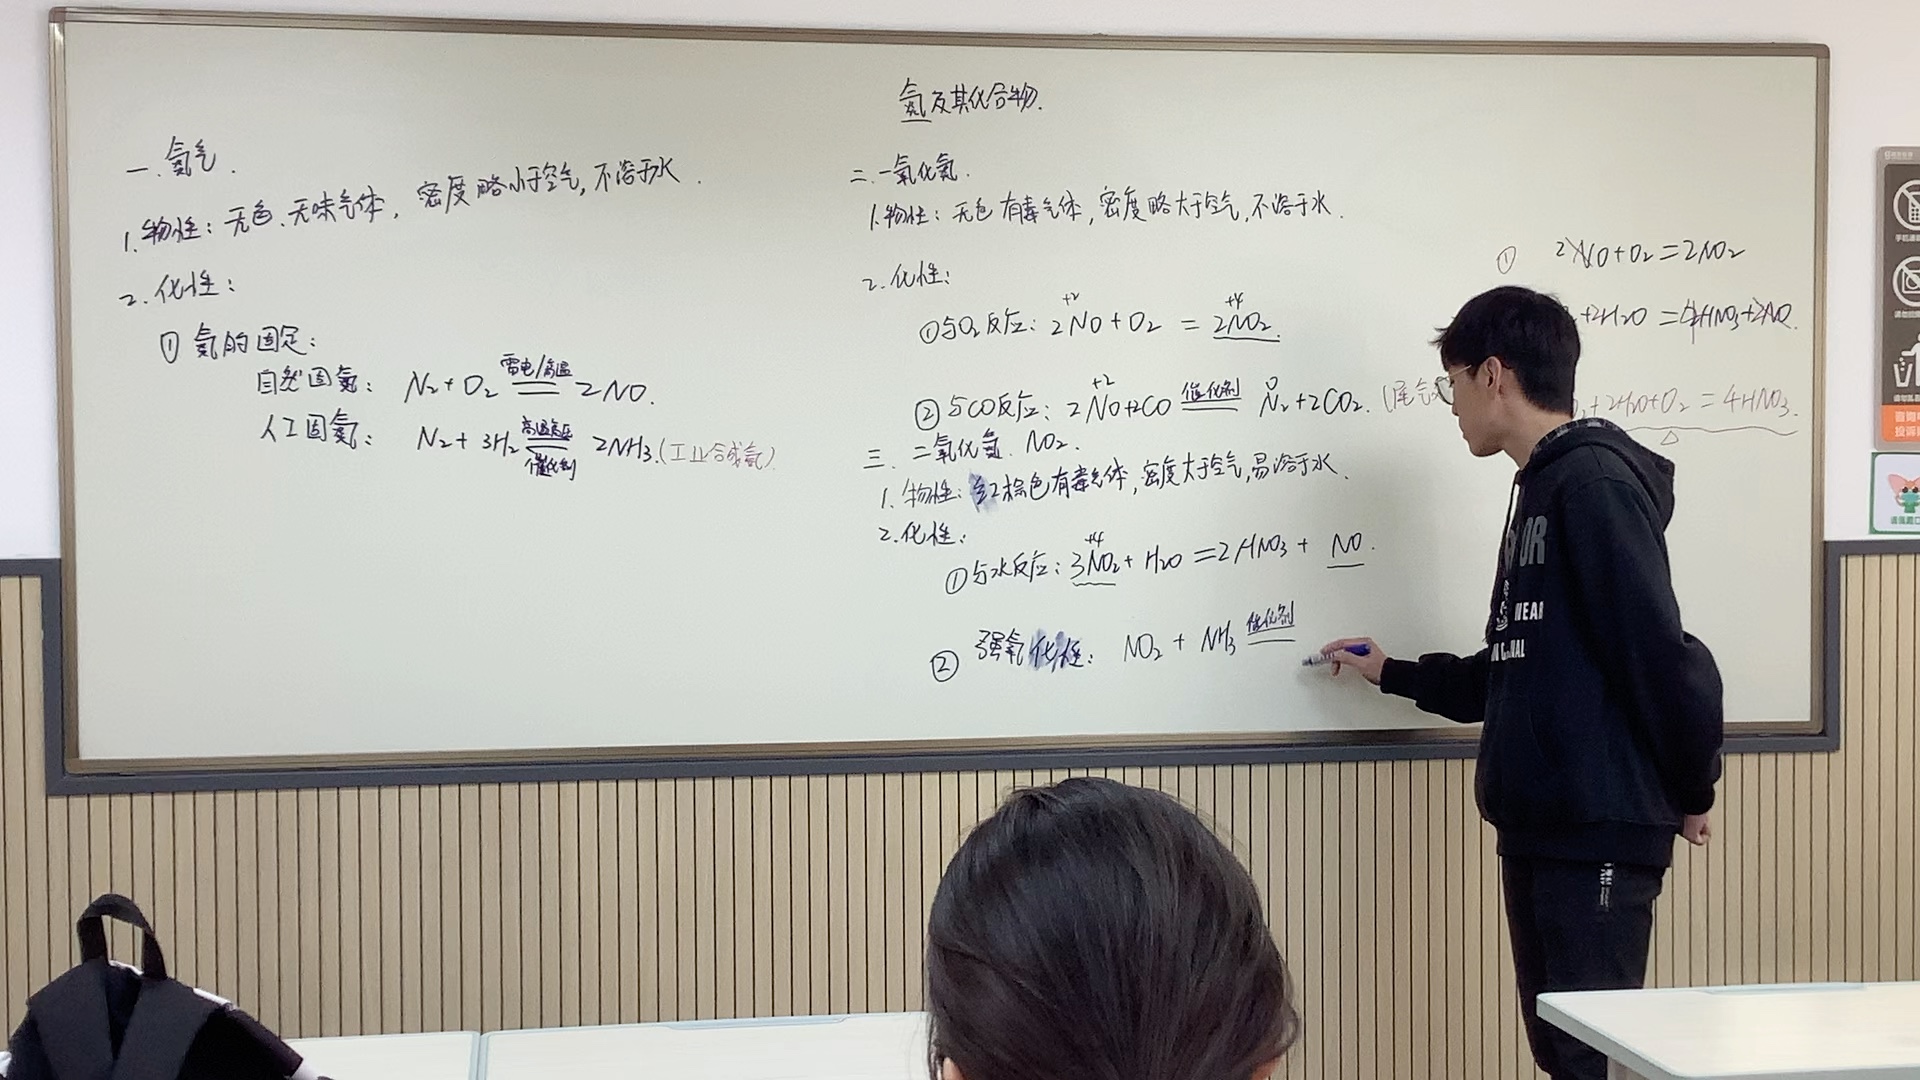 氮及其化合物.
一.氮气.
1.物性:无色、无味气体,密度略小于空气,不溶于水.
2.化性:
①氮的固定:
自然固氮: N₂+O₂ 雷电/高温 2NO.
人工固氮: N₂+3H₂ 高温高压 催化剂 2NH₃.(工业合成氨)
二.一氧化氮.
1.物性:无色有毒气体,密度略大于空气,不溶于水.
2.化性:
①与O₂反应: 2NO+O₂=2NO₂.
+2 +4
②与CO反应: 2NO+2CO 催化剂 N₂+2CO₂.(尾气
+2 0
三.二氧化氮.NO₂.
1.物性:红棕色有毒气体,密度大于空气,易溶于水.
2.化性:
①与水反应: 3NO₂+H₂O=2HNO₃+NO.
+4
②强氧化性: NO₂+NH₃ 催化剂
① 2NO+O₂=2NO₂
+2H₂O=4HNO₃+2NO.
+2H₂O+O₂=4HNO₃.
WEAR